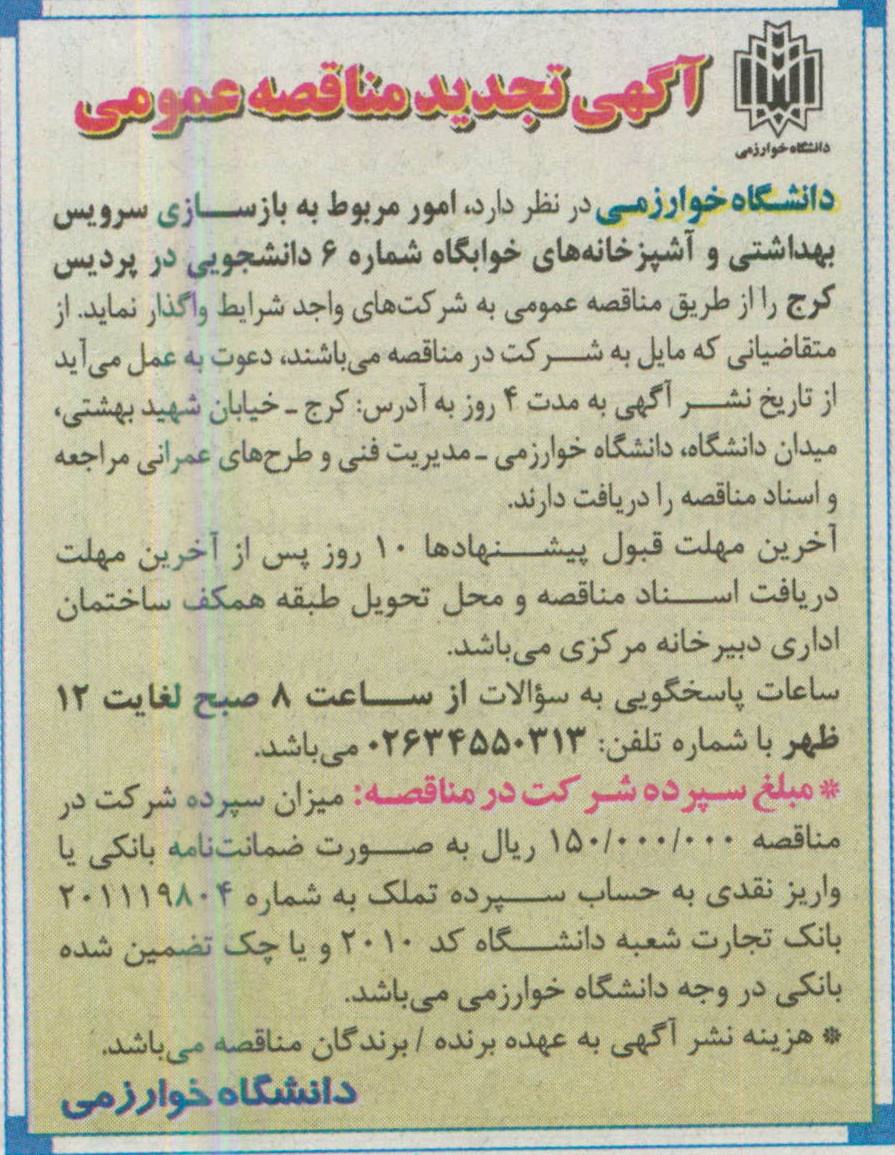 دانشگاه خوارزمی
آگهی تجدید مناقصه عمومی
دانشگاه خوارزمی در نظر دارد، امور مربوط به بازسازی سرویس
بهداشتی و آشپزخانه‌های خوابگاه شماره ۶ دانشجویی در پردیس
کرج را از طریق مناقصه عمومی به شرکت‌های واجد شرایط واگذار نماید. از
متقاضیانی که مایل به شرکت در مناقصه می‌باشند، دعوت به عمل می‌آید
از تاریخ نشر آگهی به مدت ۴ روز به آدرس: کرج ـ خیابان شهید بهشتی،
میدان دانشگاه، دانشگاه خوارزمی ـ مدیریت فنی و طرح‌های عمرانی مراجعه
و اسناد مناقصه را دریافت دارند.
آخرین مهلت قبول پیشنهادها ۱۰ روز پس از آخرین مهلت
دریافت اسناد مناقصه و محل تحویل طبقه همکف ساختمان
اداری دبیرخانه مرکزی می‌باشد.
ساعات پاسخگویی به سؤالات از ساعت ۸ صبح لغایت ۱۲
ظهر با شماره تلفن: ۰۲۶۳۴۵۵۰۳۱۳ می‌باشد.
* مبلغ سپرده شرکت در مناقصه: میزان سپرده شرکت در
مناقصه ۱۵۰/۰۰۰/۰۰۰ ریال به صورت ضمانت‌نامه بانکی یا
واریز نقدی به حساب سپرده تملک به شماره ۲۰۱۱۱۹۸۰۴
بانک تجارت شعبه دانشگاه کد ۲۰۱۰ و یا چک تضمین شده
بانکی در وجه دانشگاه خوارزمی می‌باشد.
* هزینه نشر آگهی به عهده برنده / برندگان مناقصه می‌باشد.
دانشگاه خوارزمی